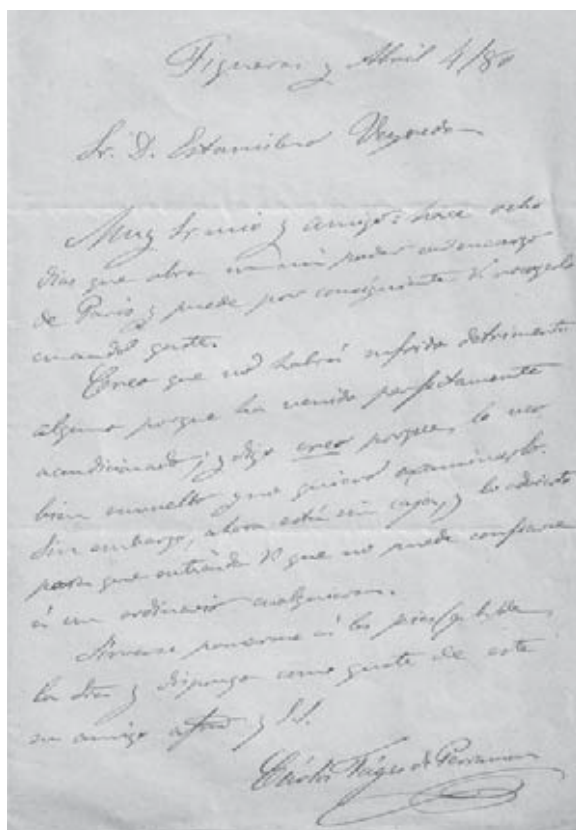 Figueras y Abril 4/80
Sr. D. Estanislao Vayreda
Muy Sr. mio y amigo: hace ocho
dias que obra en mi poder su encargo
de Paris y puede por consiguiente V. recogerlo
cuando guste.
Creo que no habrá sufrido detrimento
alguno porque ha venido perfectamente
acondicionado; y digo creo porque, lo veo
bien envuelto y no quiero examinarlo.
Sin embargo, ahora está sin caja, y lo advierto
para que entienda V. que no puede confiarse
á un ordinario cualquiera.
Sírvase ponerme á los pies
la Sra. y disponga como guste de este
su amigo afmo y S.S.
Carlos Fages de Perramon